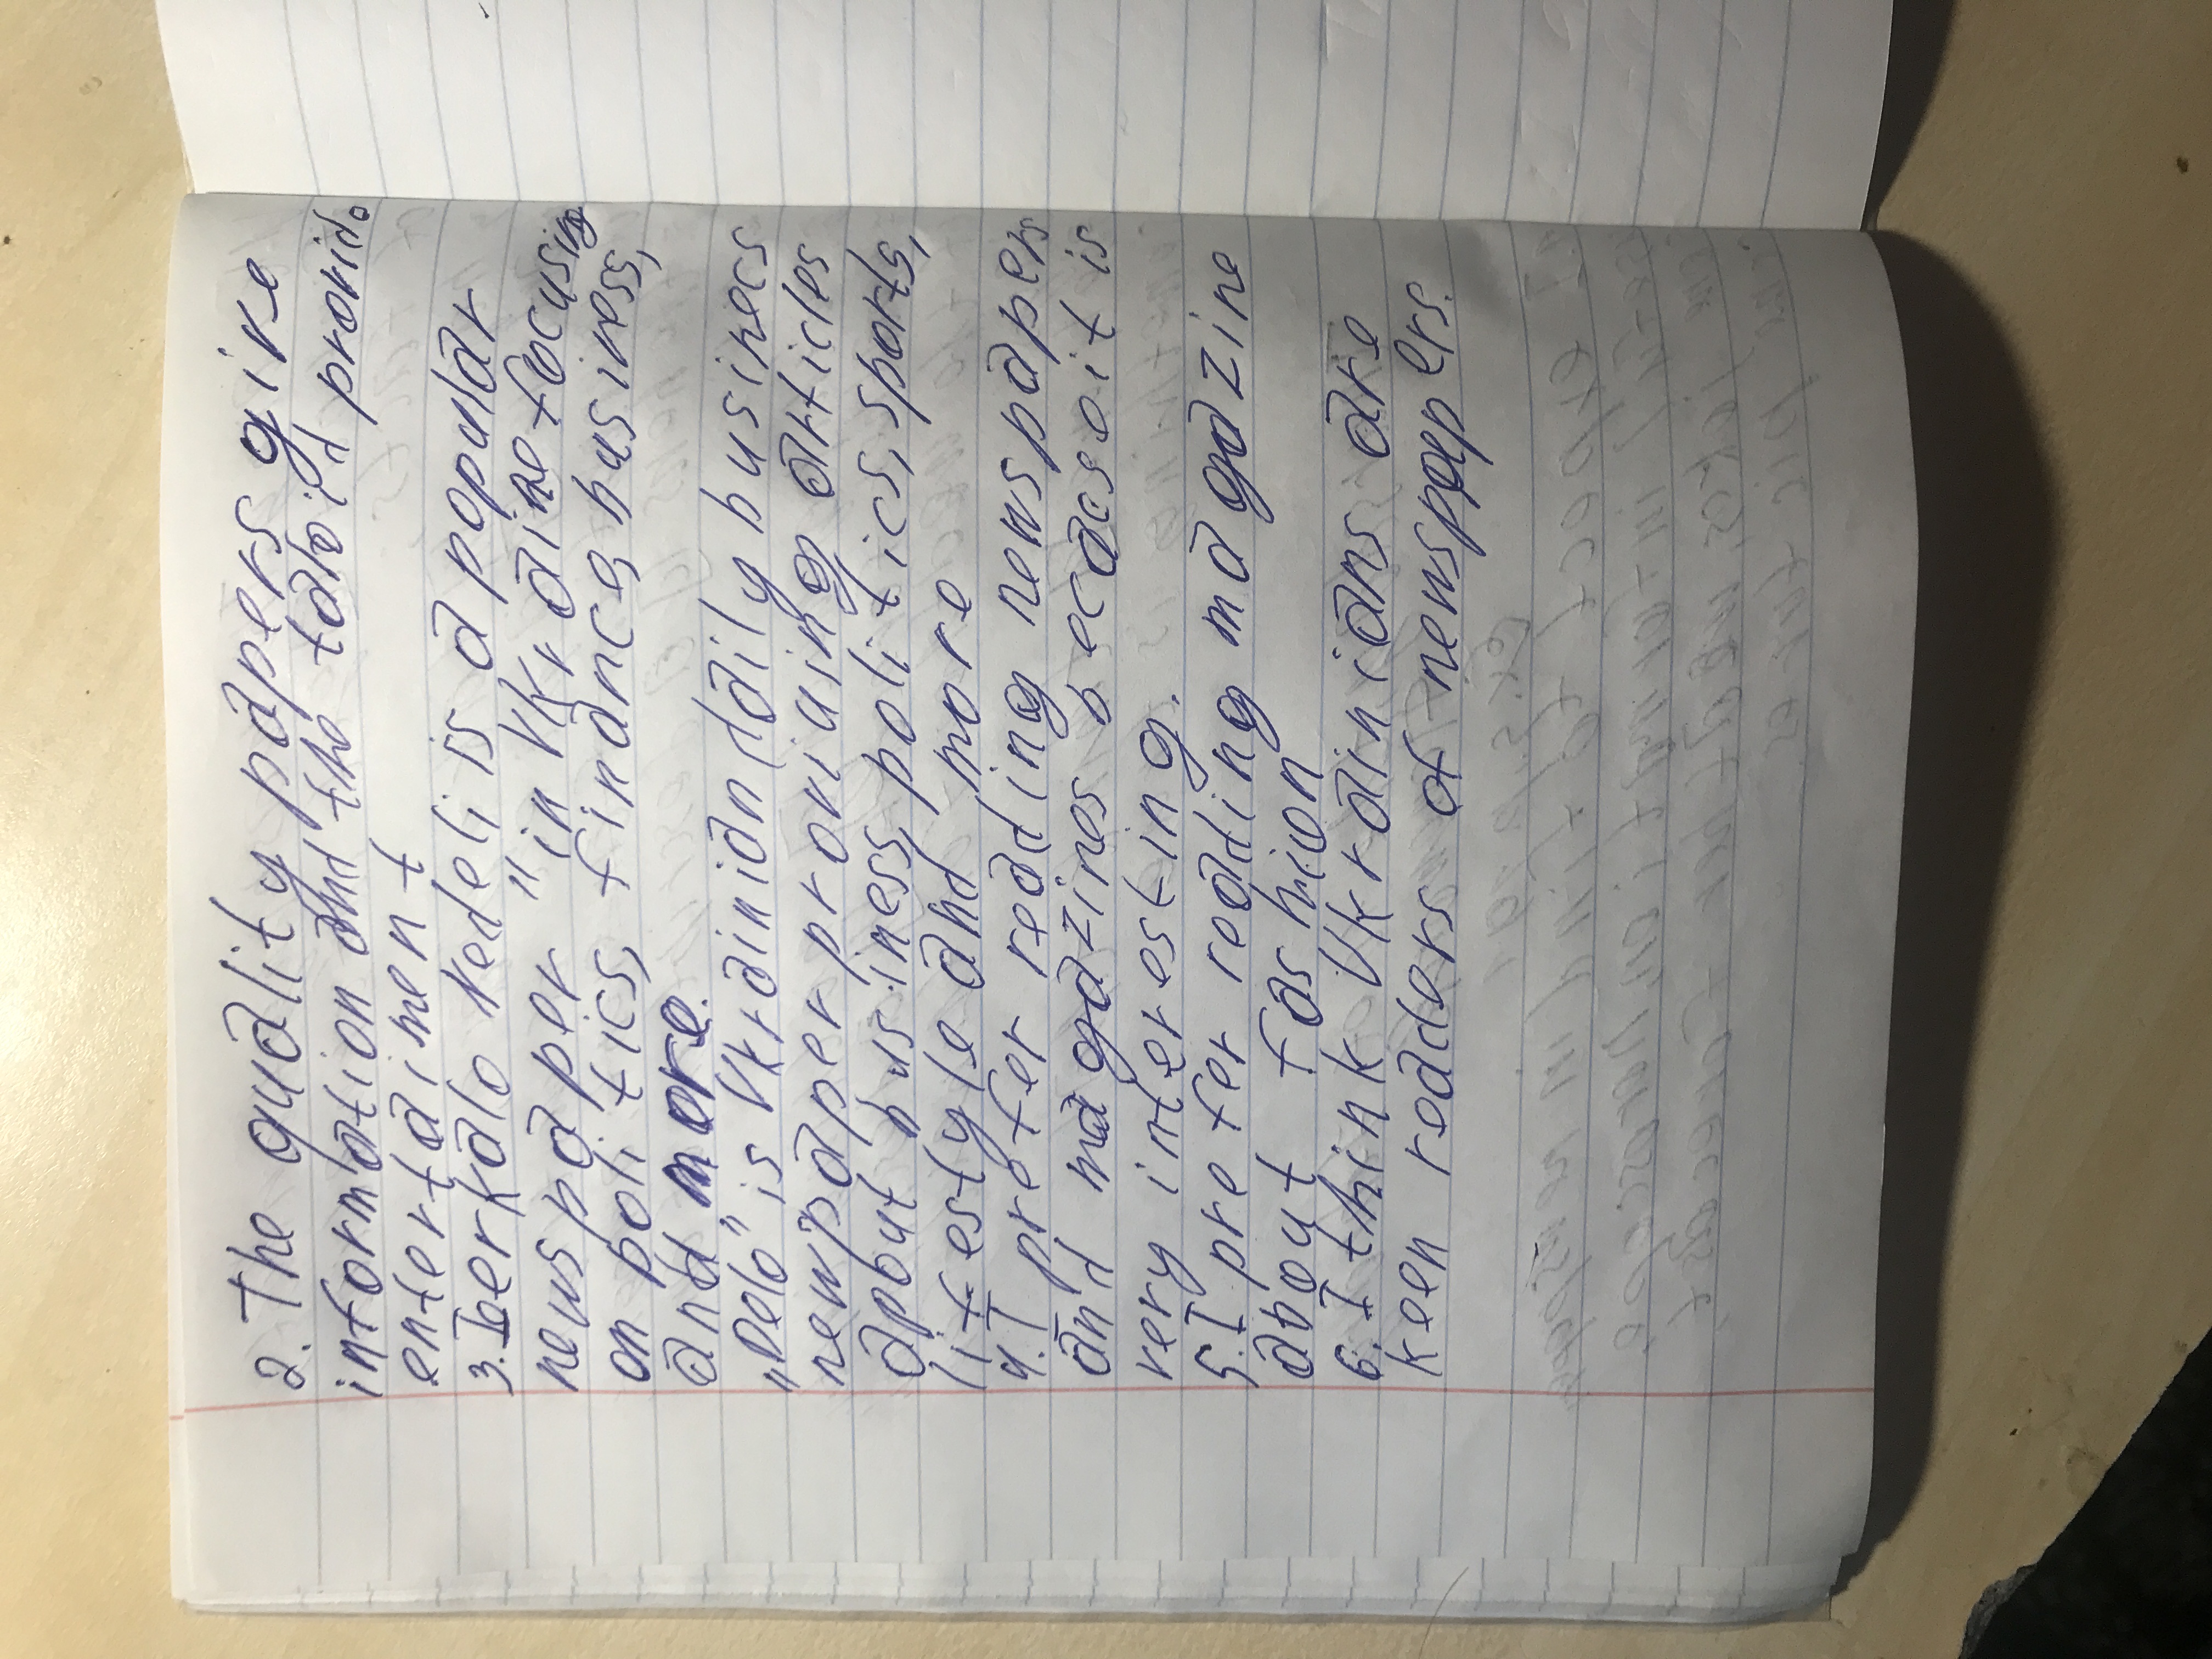 2. The quality papers give
information and the tabloid provid.
entertaiment
3. Zerkalo Nedeli is a popular
newspaper " in Ukraine focusing
on politics, finance, business,
and more.
„Delo" is Ukrainian daily businecs
newpaper proviaing articles
apbut business, politics, sports,
lifestyle and more
4. I prefer reading newspapers
and magazines becacse it is
very interesting.
5. I prefer reading magazine
about fashion
6. I think Ukrainians are
keen readers of newspaepers.